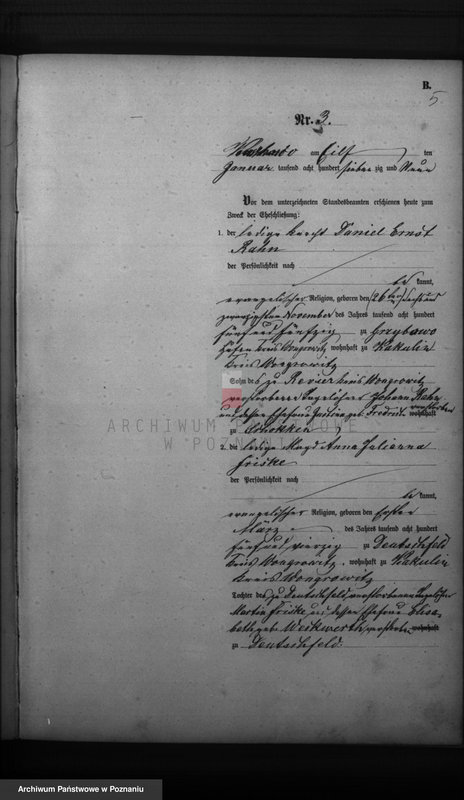 B.
5
Nr. 3.
am Eilf ten
Januar tausend acht hundert sieben zig und Neun
Vor dem unterzeichneten Standesbeamten erschienen heute zum
Zweck der Eheschließung:
1. der ledige Knecht Daniel Ernst
Rahn
der Persönlichkeit nach
be kannt,
evangelischer Religion, geboren den (26 ten) sechs und
zwanzigsten November des Jahres tausend acht hundert
fünf und fünfzig zu Grzybowo
Kreis Wongrowitz, wohnhaft zu Kakulin
Kreis Wongrowitz
Sohn des zu Revier Kreis Wongrowitz
verstorbenen Johann Rahn
und dessen Ehefrau geb. wohnhaft
zu
ARCHIWUM PAŃSTWOWE
W POZNANIU
2. die ledige Magd Anna Julianna
Friske
der Persönlichkeit nach
be kannt,
evangelischer Religion, geboren den ersten
März des Jahres tausend acht hundert
fünf und vierzig zu Deutschfeld
Kreis Wongrowitz, wohnhaft zu Kakulin
Kreis Wongrowitz
Tochter des zu Deutschfeld verstorbenen
Martin Friske und dessen Ehefrau Elisa-
beth geb. wohnhaft
zu Deutschfeld.
Archiwum Państwowe w Poznaniu